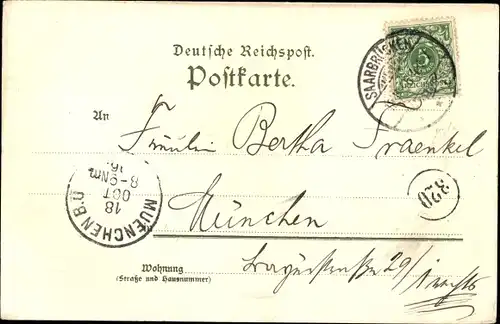 Deutsche Reichspost.
Postkarte.
SAARBRÜCKEN
5
An
Fräulein Bertha Fraenkel
320
München
MUENCHEN B.O.
18
OCT
8-9Nm
29/I rechts
Wohnung
(Straße und Hausnummer)